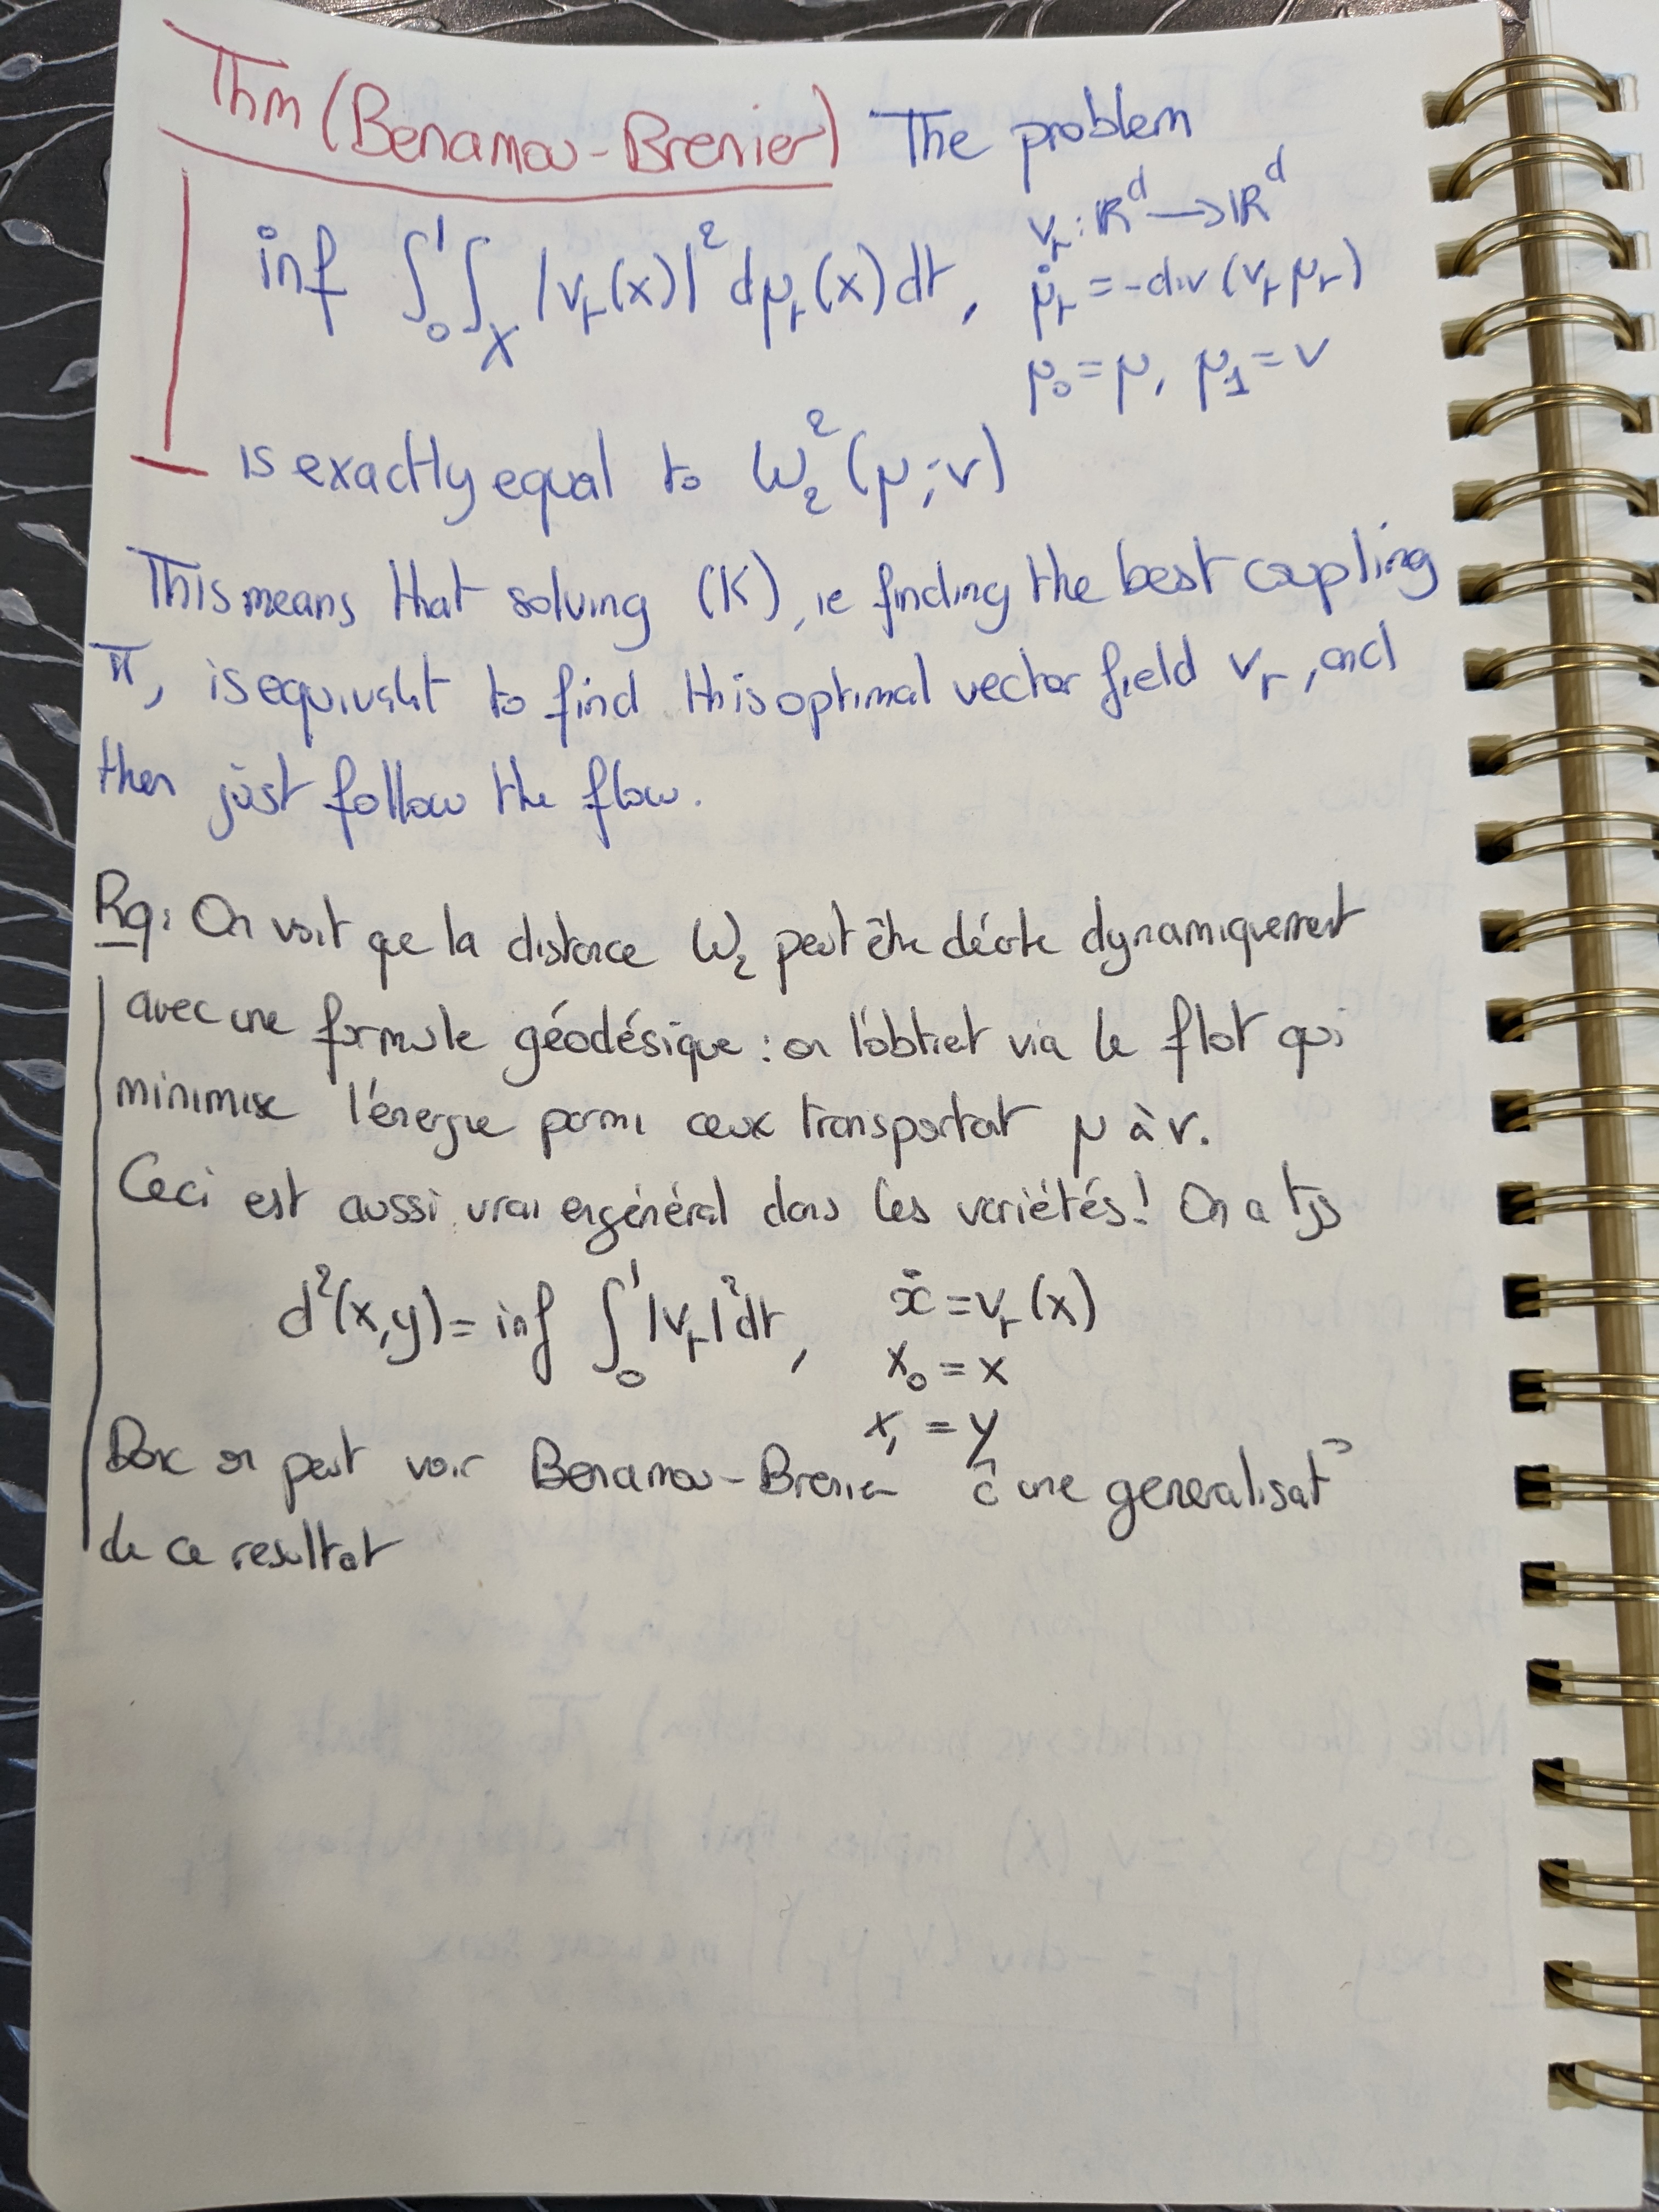 Thm (Benamou-Brenier) The problem
inf ∫₀¹ ∫_X |v_t(x)|² dμ_t(x) dt, v_t : ℝ^d → ℝ^d
μ̇_t = -div (v_t μ_t)
μ₀ = μ, μ₁ = ν
is exactly equal to W₂²(μ;ν)
This means that solving (K), ie finding the best coupling
π, is equivalent to find this optimal vector field v_t, and
then just follow the flow.
Rq: On voit que la distance W₂ peut être décrite dynamiquement
avec une formule géodésique : on l'obtient via le flot qui
minimise l'énergie parmi ceux transportant μ à ν.
Ceci est aussi vrai en général dans les variétés! On a tjs
d²(x,y) = inf ∫₀¹ |v_t|² dt, ẋ = v_t(x)
x₀ = x
x₁ = y
Donc on peut voir Benamou-Brenier ĉ une generalisat°
de ce resultat